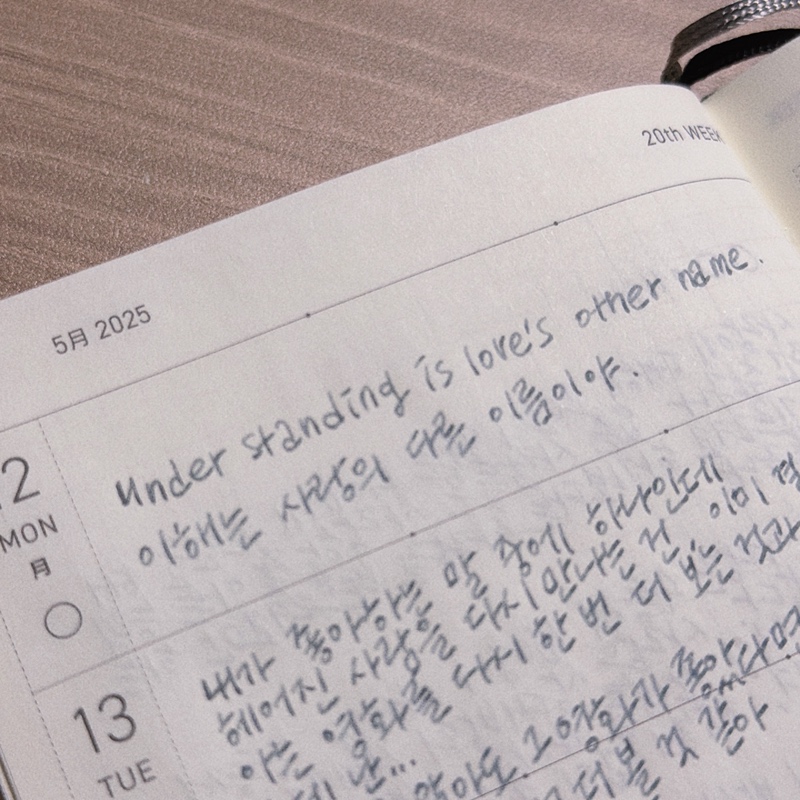 20th WEEK
5月 2025
12
MON
月
Under standing is love's other name.
이해는 사랑의 다른 이름이야.
13
TUE
내가 좋아하는 말 중에 하나인데
헤어진 사람을 다시 만나는 건, 이미 결
아는 영화를 다시 한 번 더 보는 것과
데 난... 알아도 그 영화가 좋았다면
더 볼 것 같아